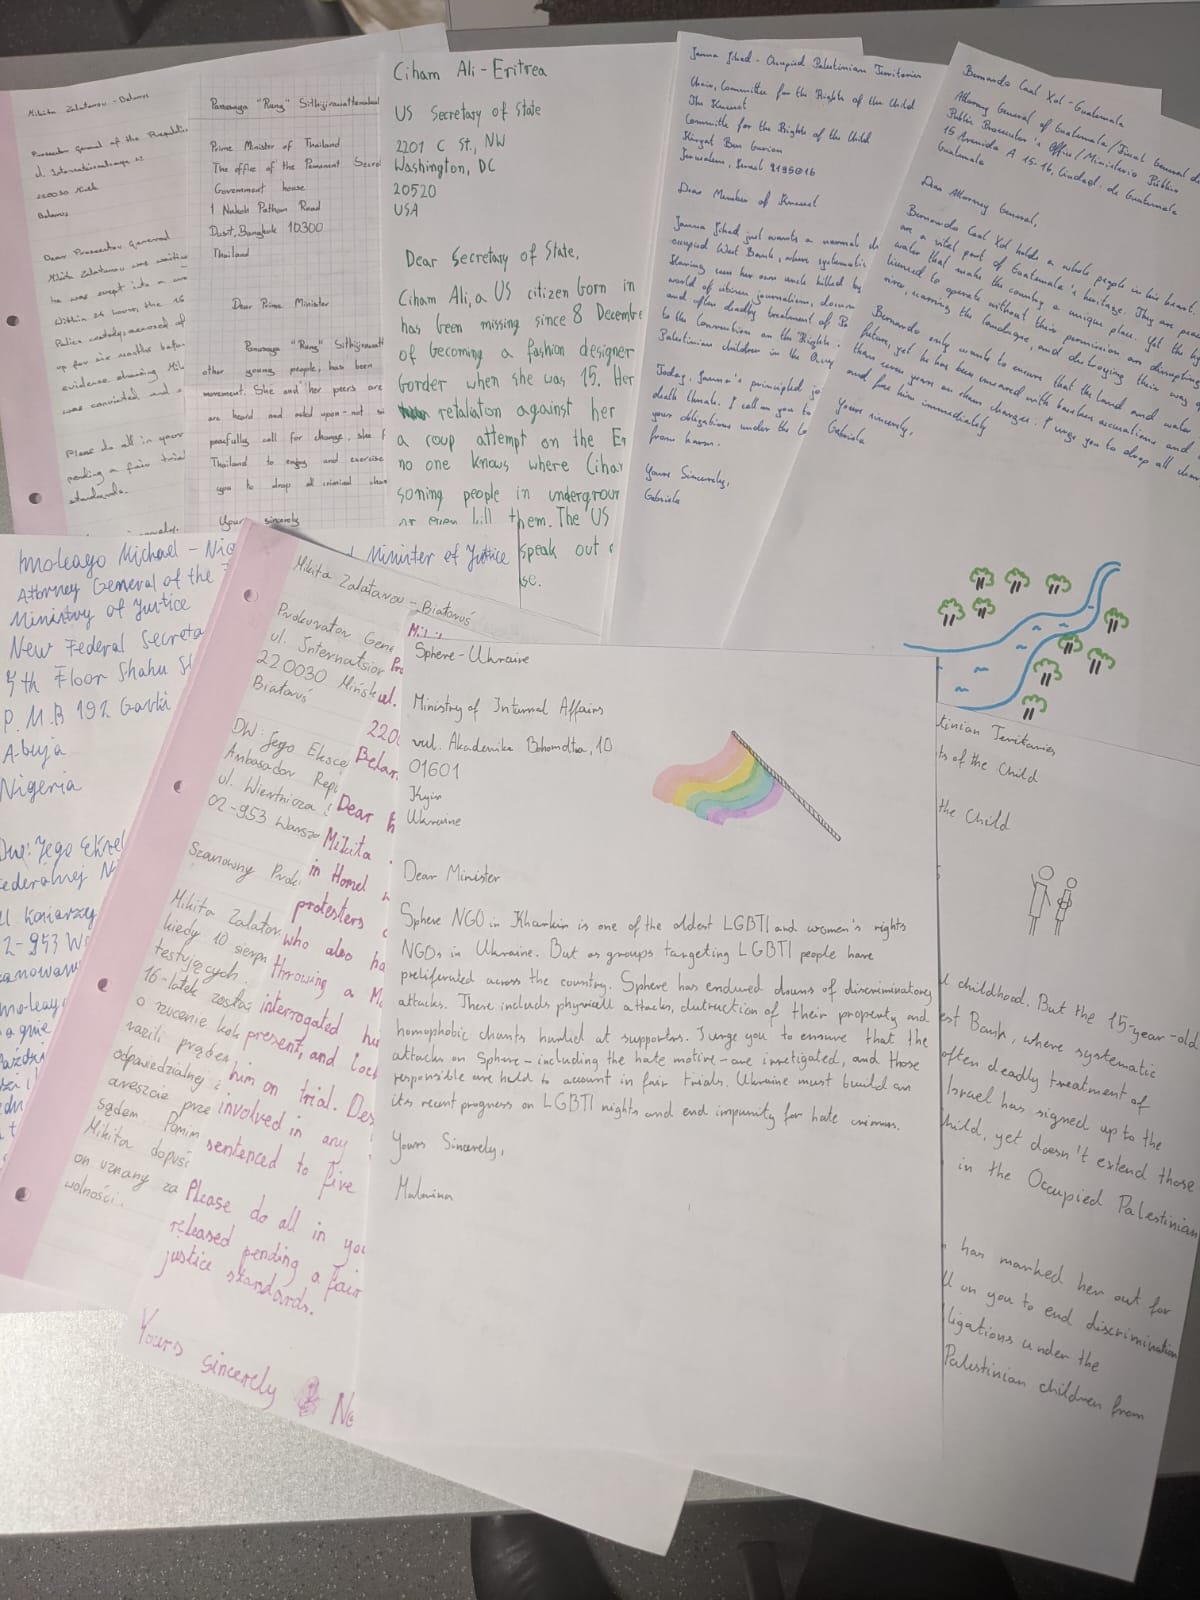 Mikita Zalatarou - Belarus
Prosecutor General of the Republic
ul. Internatsionalnaya 22
220030 Minsk
Belarus
Dear Prosecutor General
Mikita Zalatarou was
he was swept into a
Within 24 hours, the 16
Police custody, accused of
up for six months before
evidence showing Mik
was convicted and
Please do all in your
pending a fair trial
standards.
Panusaya "Rung" Sithijirawattanakul
Prime Minister of Thailand
The office of the Permanent Secre
Government house
1 Nakoh Pathom Road
Dusit, Bangkok 10300
Thailand
Dear Prime Minister
Panusaya "Rung" Sithijirawatt
other young people, has been
movement. She and her peers are
are heard and acted upon - not si
peacfully call for change, she f
Thailand to enjoy and exercise
you to drop all criminal char
Yours sincerely
Ciham Ali - Eritrea
US Secretary of State
2201 C St., NW
Washington, DC
20520
USA
Dear Secretary of State,
Ciham Ali, a US citizen born in
has been missing since 8 Decembe
of becoming a fashion designer
border when she was 15. Her
retaliaton against her
a coup attempt on the Er
no one knows where Ciha
soning people in undergrour
or even kill them. The US
speak out
se.
Janna Jihad - Occupied Palestinian Territories
Chair, Committee for the Rights of the Child
The Knesset
Committe for the Rights of the Child
Kiryat Ben Gurion
Jerusalem, Israel 9195016
Dear Member of Knesset
Janna Jihad just wants a normal
occupied West Bank, where systematic
Having seen her own uncle killed by
world of citizen journalism, docum
and often deadly treatment of Pa
to the Convention on the Rights
Palestinian children in the Occup
Today, Janna's principled jo
death threats. I call on you to
your obligations under the
from harm.
Yours Sincerely,
Gabriela
Bernardo Caal Xol - Guatemala
Attorney General of Guatemala/Fiscal General de
Public Prosecutor's Office/Ministerio Público
15 Avenida A 15-16, Ciudad de Guatemala
Guatemala
Dear Attorney General,
Bernardo Caal Xol holds a whole people in his heart.
are a vital part of Guatemala's heritage. They are peac
water that make the country a unique place. Yet the hy
licenced to operate without their permission are disrupting
river, scarring the landscape, and destroying their way of
Bernardo only wants to ensure that the land and water
future, yet he has been smeared with baseless accusations and
than seven years on sham charges. I urge you to drop all char
and free him immediately
Yours sincerely,
Gabriela
Imoleayo Michael - Nig
Minister of Justice
Attorney General of the
Ministry of Justice
New Federal Secreta
5th Floor Shahu Sh
P.M.B 192 Garki
Abuja
Nigeria
Dw: Jego Ekscel
Federalnej Ni
02-953 Wa
Mikita Zalatarou - Białoruś
Prokurator Gene
ul. Internatsion
220030 Mińsk
Białoruś
DW: Jego Eksce
Ambasador Repu
ul. Wiertnicza
02-953 Warsza
Szanowny Proku
Mikita Zalatar
kiedy 10 sierpn
testujących.
16-latek został
o rzucenie kok
razili prądem,
odpowiedzialnej
areszcie prze
sądem. Pomim
Mikita dopuś
on uznany za
wolności.
ul.
220
Belar
Dear
Mikita
in Homel
protesters
who also ha
throwing a Mo
interrogated hi
present, and lock
him on trial. Des
involved in any
sentenced to five
Please do all in you
released pending a fair
justice standards.
Yours sincerely
Sphere - Ukraine
Ministry of Internal Affairs
vul. Akademika Bohomoltsa, 10
01601
Kyiv
Ukraine
Dear Minister
Sphere NGO in Kharkiv is one of the oldest LGBTI and women's rights
NGOs in Ukraine. But as groups targeting LGBTI people have
proliferated across the country. Sphere has endured dozens of discriminatory
attacks. These include physicall attacks, destruction of their property and
homophobic chants hurled at supporters. I urge you to ensure that the
attacks on Sphere - including the hate motive - are invetigated, and those
responsible are held to account in fair trials. Ukraine must build on
its recent progress on LGBTI rights and end impunity for hate crimes.
Yours Sincerely,
Malwina
tinian Territories
ts of the Child
the Child
l childhood. But the 15-year-old
est Bank, where systematic
often deadly treatment of
Israel has signed up to the
Child, yet doesn't extend those
in the Occupied Palestinian
has marked her out for
ll on you to end discrimination
ligations under the
Palestinian children from